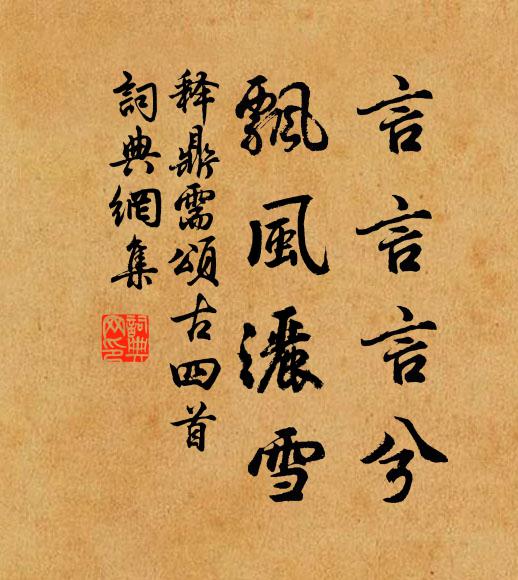 言言言兮
飄風灑雪
释鼎需頌古四首
詞典網集
詞典
网印